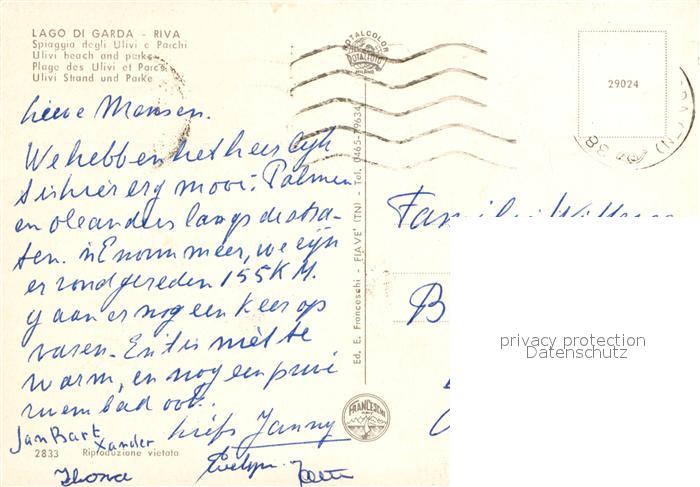 LAGO DI GARDA - RIVA
Spiaggia degli Ulivi e Parchi
Ulivi beach and parks
Plage des Ulivi et Parcs
Ulivi Strand und Parke
ROTALCOLOR
ROTALFOTO
MILANO
29024
Lieve Mensen.
We hebben het heerlijk
't is hier erg mooi. Palmen
en oleanders langs de stra-
ten. 'n Enorm meer, we zijn
er rond gereden 155 KM.
gaan er nog een keer op
varen. En 't is niet te
warm, en nog een privé
zwembad ook.
Liefs Janny
Jan Bart
Xander
Ilona
Evelyn
Familie
B
Ed. E. Franceschi - FIAVE' (TN) - Tel. 0465-79634
FRANCESCHI
2833 Riproduzione vietata
privacy protection
Datenschutz